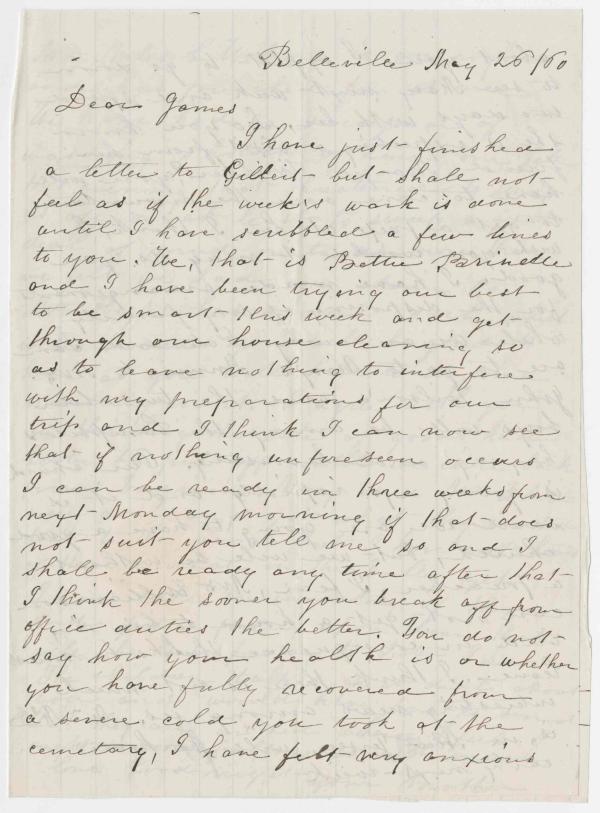 Belleville May 26/60
Dear James
I have just finished
a letter to Gilbert but shall not
feel as if the week's work is done
until I have scribbled a few lines
to you. We, that is Bettie Brindle
and I have been trying our best
to be smart this week and get
through our house cleaning so
as to leave nothing to interfere
with my preparations for our
trip and I think I can now see
that if nothing unforeseen occurs
I can be ready in three weeks from
next Monday morning if that does
not suit you tell me so and I
shall be ready any time after that
I think the sooner you break off from
office duties the better. You do not
say how your health is or whether
you have fully recovered from
a severe cold you took at the
cemetary, I have felt very anxious